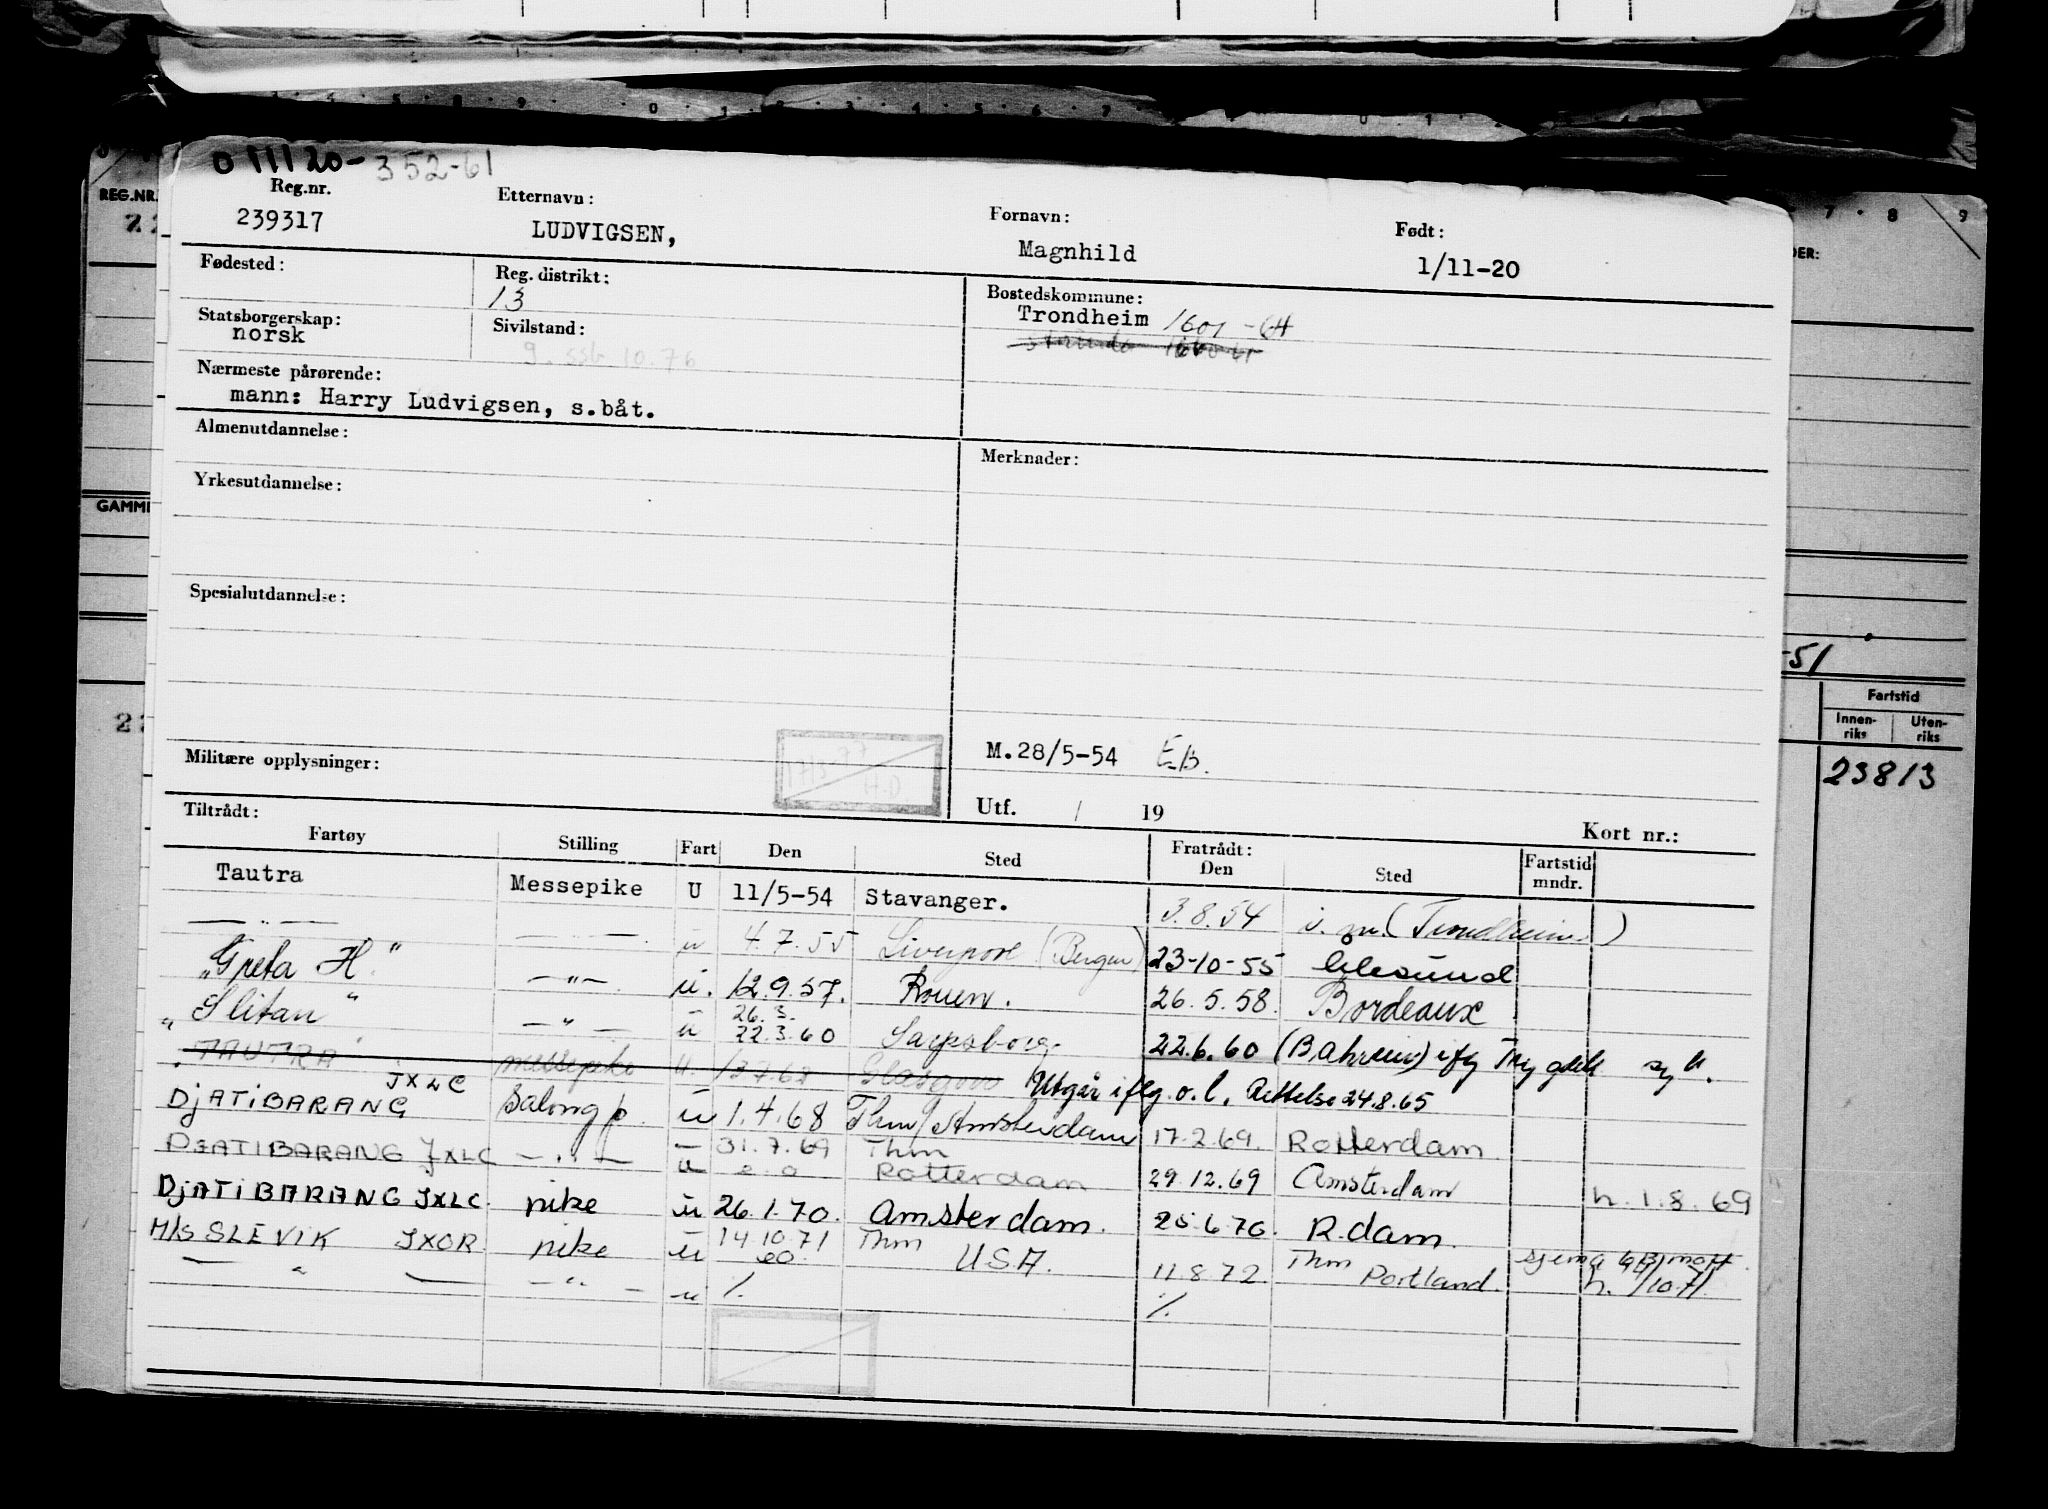 011120-352-61
REG.NR.
Reg.nr.
239317
Etternavn:
LUDVIGSEN,
Fornavn:
Magnhild
Født:
1/11-20
Fødested:
Reg. distrikt:
13
Bostedskommune:
Trondheim 1601-64
Statsborgerskap:
norsk
Sivilstand:
g. ssb 10.76
Nærmeste pårørende:
mann: Harry Ludvigsen, s.båt.
Almenutdannelse:
Merknader:
Yrkesutdannelse:
Spesialutdannelse:
-51
Fartstid
Innen-riks Uten-riks
23813
Militære opplysninger:
H.D
M.28/5-54 E.B.
Utf. / 19
Kort nr.:
Tiltrådt:
Fartøy Stilling Fart Den Sted Fratrådt: Den Sted Fartstid mndr.
Tautra Messepike U 11/5-54 Stavanger. 3.8.54 i. m. (Trondheim)
— " — — — u 4.7.55 Liverpool (Bergen) 23-10-55 Ålesund
"Greta H." — " — u. 12.9.57. Rouen. 26.5.58. Bordeaux
"Slitan" — " — u 26.3. 22.3.60 Sarpsborg 22.6.60 (Bahrein) iflg Trygdek syk.
TAUTRA messepike u. Glasgow Utgår iflg. o.l. Rettelse 24.8.65
DjATiBARANG JXLC Salongp. u 1.4.68 Thm/Amsterdam 17.2.69. Rotterdam
DjATIBARANG JXLC — " — u 31.7.69 Thm Rotterdam 29.12.69 Amsterdam h. 1.8.69
DjATiBARANG JXLC. pike u 26.1.70. Amsterdam. 25.6.70. R.dam.
M/S SLEVIK JXOR pike u 14.10.71 Thm USA. 11.8.72 Thm Portland. h. /10.71.
— " — — " — u %. %.